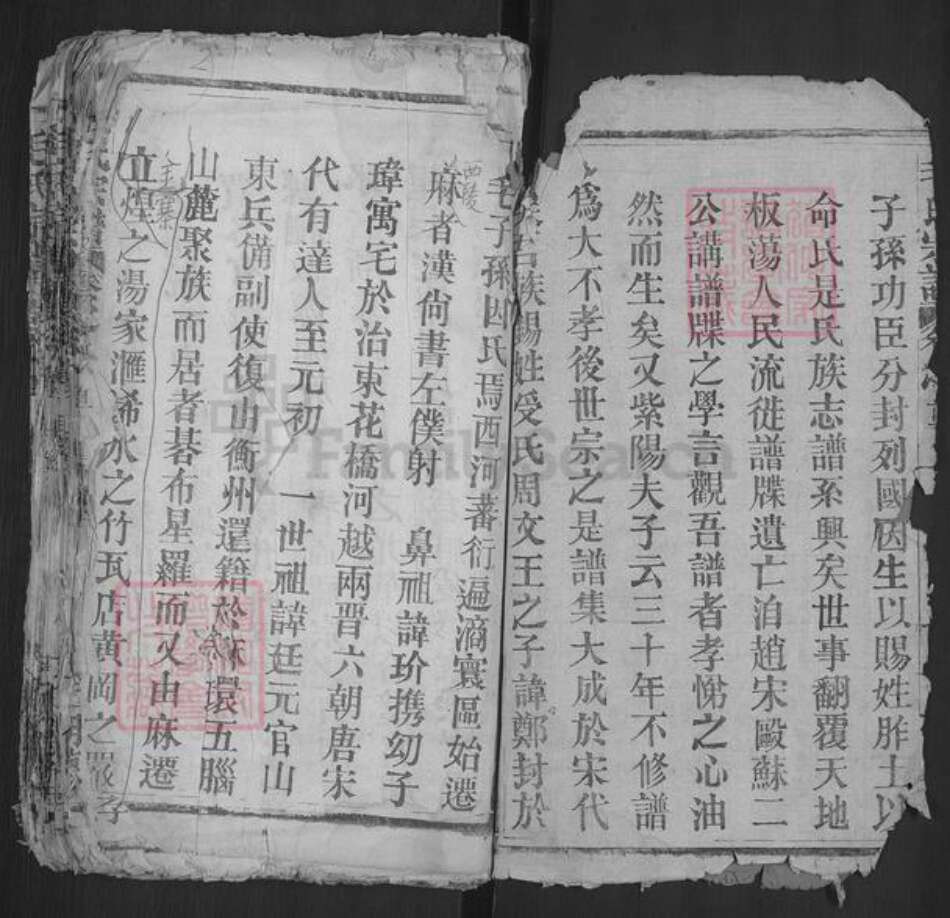 子孫功臣分封列國因生以賜姓胙土以
命氏是氏族志譜系興矣世事翻覆天地
板蕩人民流徙譜牒遺亡洎趙宋歐蘇二
公講譜牒之學言觀吾譜者孝悌之心油
然而生矣又紫陽夫子云三十年不修譜
為大不孝後世宗之是譜集大成於宋代
族錫姓受氏周文王之子諱鄭封於
毛子孫因氏焉西河蕃衍遍滿寰區始遷
西陵
麻者漢尚書左僕射 鼻祖諱玠携幼子
瑋寓宅於治東花橋河越兩晉六朝唐宋
代有達人至元初 一世祖諱廷元官山
東兵備副使復山衡州還籍於麻環五腦
山麓聚族而居者碁布星羅而又由麻遷
立煌之湯家滙浠水之竹瓦店黄岡之
FamilySearch